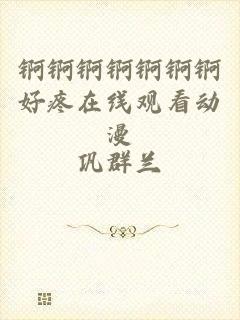 锕锕锕锕锕锕锕
好疼在线观看动
漫
巩群兰